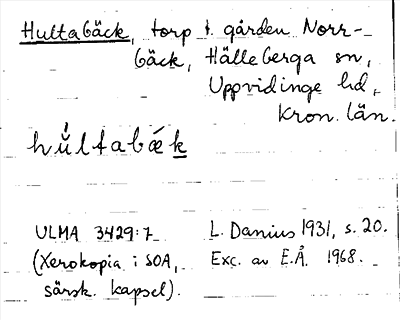 Hultabäck, torp t. gården Norr-
bäck, Hälleberga sn,
Uppvidinge hd,
Kron. län.
hu̇́ltabǽk
ULMA 3429:7
(Xerokopia i SOA,
särsk. kapsel).
L. Danius 1931, s. 20.
Exc. av E.Å. 1968.